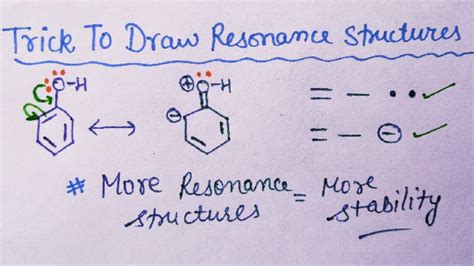 Trick To Draw Resonance Structures
O-H
⊕ O-H
⊖
= – •• ✓
= – ⊖ ✓
# More Resonance structures = More stability